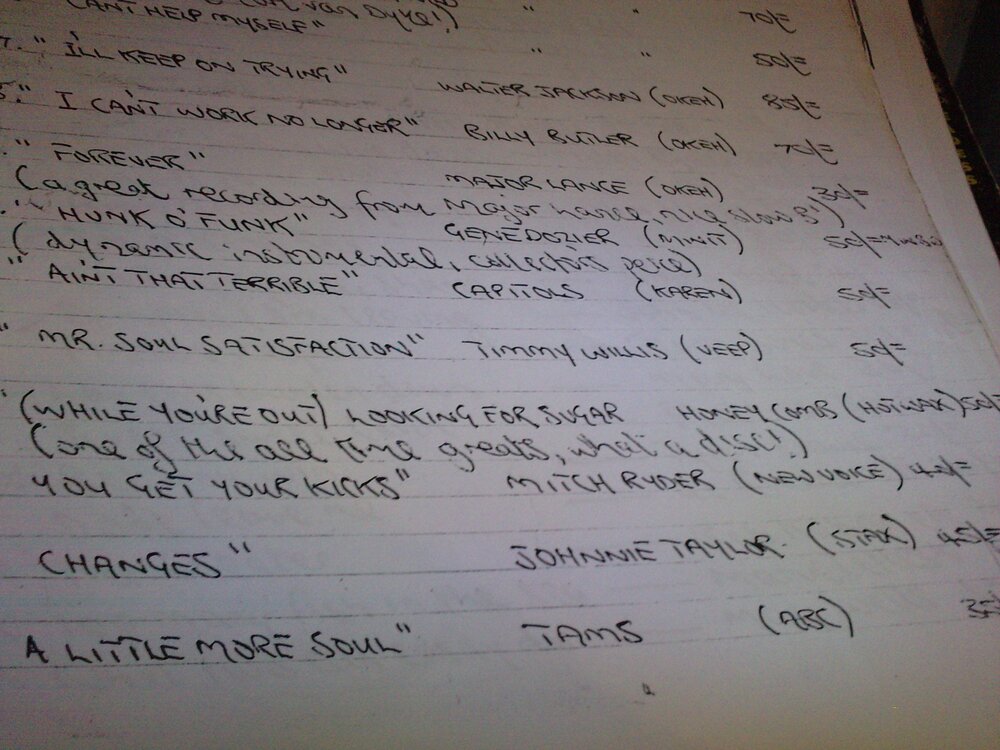 VAN DYKE!)
CAN'T HELP MYSELF" " " 70/=
7. " I'LL KEEP ON TRYING" " " 50/=
" I CAN'T WORK NO LONGER" WALTER JACKSON (OKEH) 85/=
" FOREVER" BILLY BUTLER (OKEH) 70/=
MAJOR LANCE (OKEH) 30/=
(a great recording from Major Lance, nice slow 's')
" HUNK O' FUNK" GENE DOZIER (MINIT) 50/=
(dynamic instrumental, collectors peice)
" AIN'T THAT TERRIBLE" CAPITOLS (KAREN) 50/=
" MR. SOUL SATISFACTION" TIMMY WILLIS (VEEP) 50/=
" (WHILE YOU'RE OUT) LOOKING FOR SUGAR HONEY COMB (HOTWAX) 50/=
(one of the all time greats, what a disc!)
YOU GET YOUR KICKS" MITCH RYDER (NEW VOICE) 40/=
CHANGES" JOHNNIE TAYLOR. (STAX) 45/=
A LITTLE MORE SOUL" TAMS (ABC)